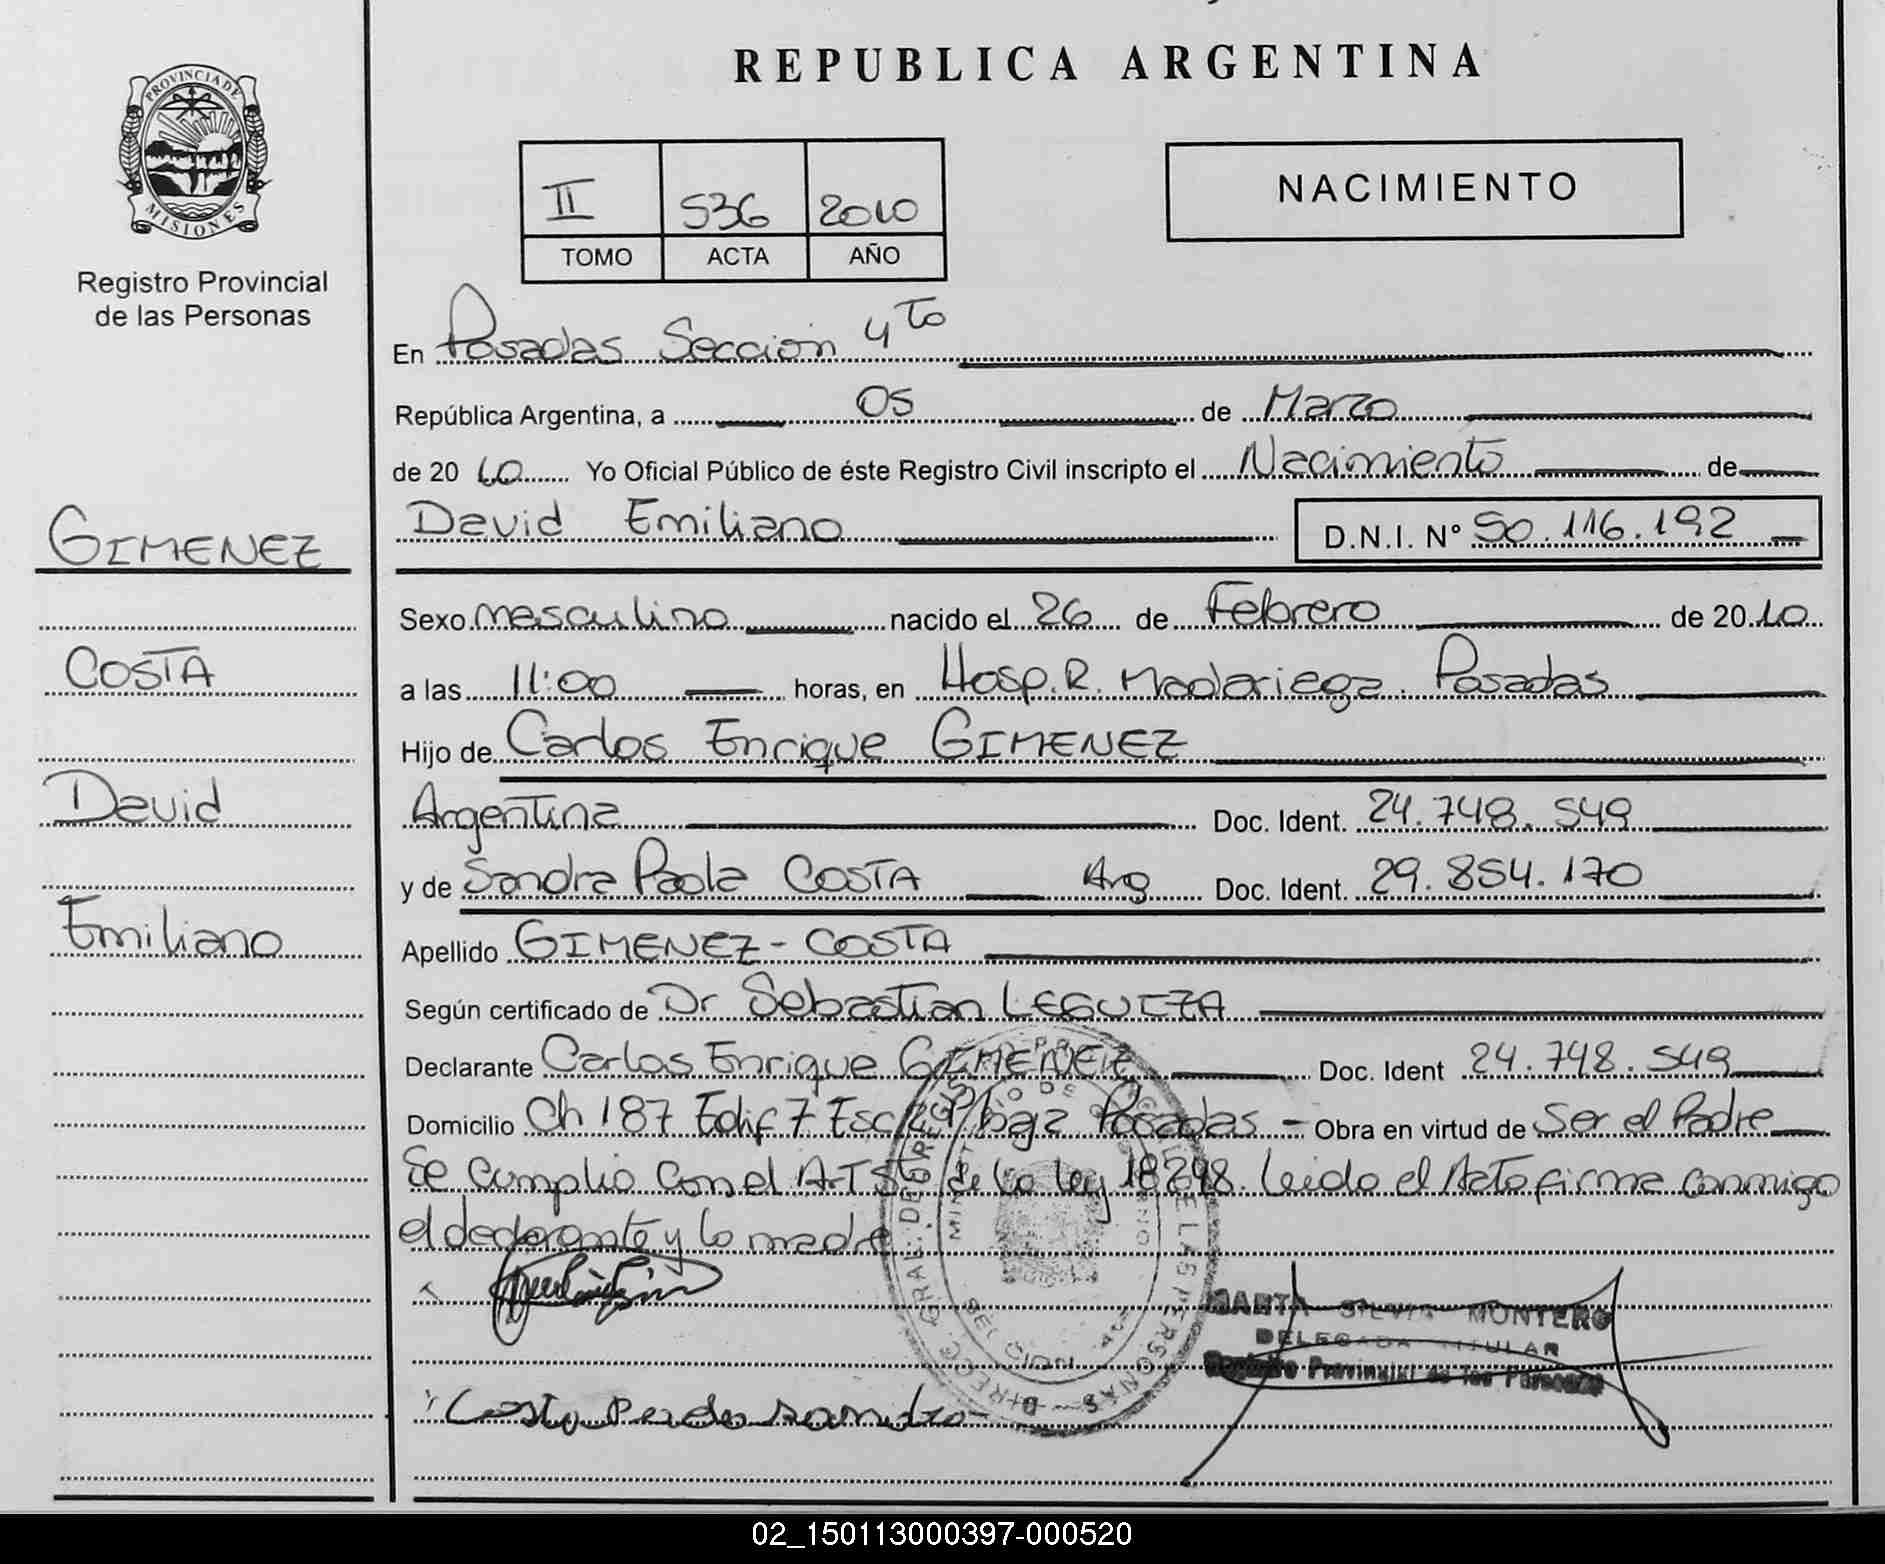 REPUBLICA ARGENTINA
PROVINCIA DE
MISIONES
Registro Provincial
de las Personas
II 536 2010
TOMO ACTA AÑO
NACIMIENTO
En Posadas Sección 4to
República Argentina, a 05 de Marzo
de 2010 Yo Oficial Público de éste Registro Civil inscripto el Nacimiento de
David Emiliano D.N.I. N° 50.116.192
GIMENEZ
COSTA
David
Emiliano
Sexo masculino nacido el 26 de Febrero de 2010
a las 11:00 horas, en Hosp. R. Madariaga. Posadas
Hijo de Carlos Enrique GIMENEZ
Argentina Doc. Ident. 24.748.549
y de Sandra Paola COSTA Arg Doc. Ident. 29.854.170
Apellido GIMENEZ - COSTA
Según certificado de Dr Sebastian LEGUIZA
Declarante Carlos Enrique GIMENEZ Doc. Ident 24.748.549
Domicilio Ch 187 Edif 7 Posadas - Obra en virtud de Ser el Padre
Se cumplio con el ART 5t de la ley 18248. Leido el Acta firma conmigo
el declarante y la madre
MARTA SILVIA MONTERO
DELEGADA TITULAR
Registro Provincial de las Personas
Costa
02_150113000397-000520